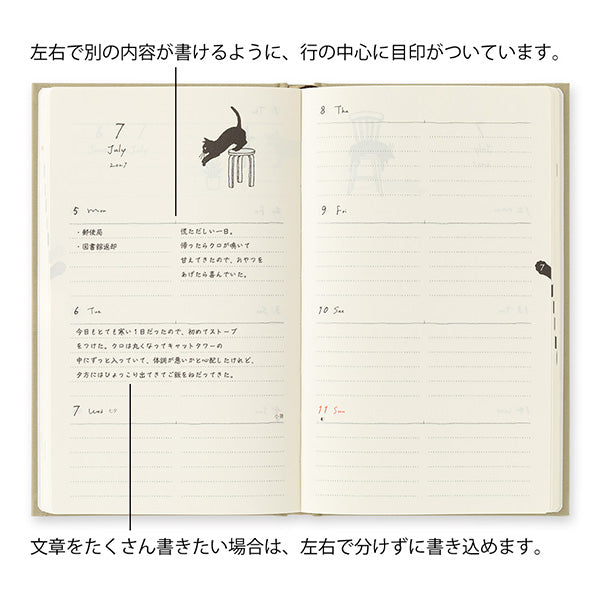 左右で別の内容が書けるように、行の中心に目印がついています。
7
July
5 Mon
・郵便局
・図書館返却
慌ただしい一日。
帰ったらクロが鳴いて
甘えてきたので、おやつを
あげたら喜んでいた。
6 Tue
今日もとても寒い1日だったので、初めてストーブ
をつけた。クロは丸くなってキャットタワーの
中にずっと入っていて、体調が悪いかと心配したけれど、
夕方にはひょっこり出てきてご飯をねだってきた。
7 Wed 七夕
小暑
8 Thu
9 Fri
7
10 Sat
11 Sun
文章をたくさん書きたい場合は、左右で分けずに書き込めます。